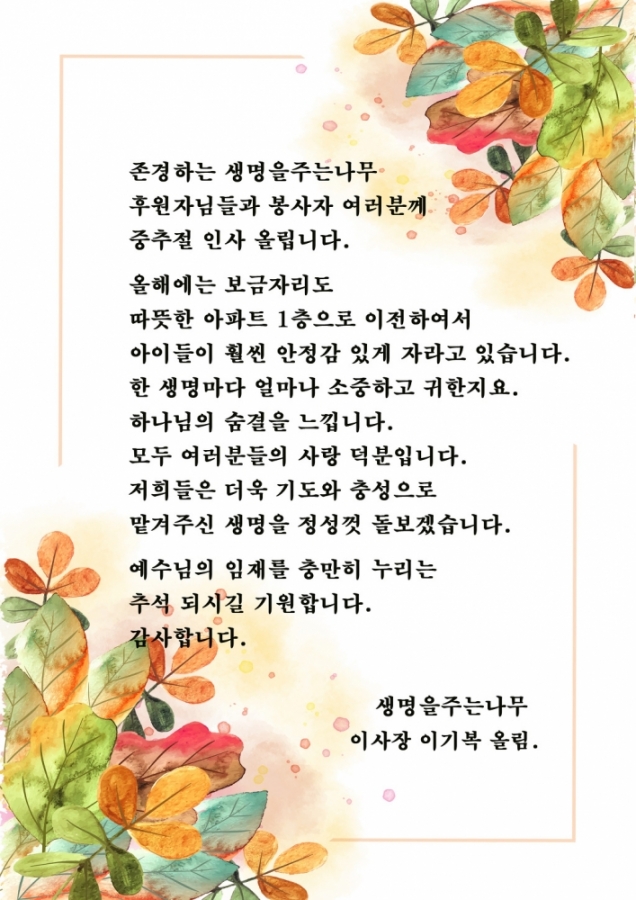 존경하는 생명을주는나무
후원자님들과 봉사자 여러분께
중추절 인사 올립니다.
올해에는 보금자리도
따뜻한 아파트 1층으로 이전하여서
아이들이 훨씬 안정감 있게 자라고 있습니다.
한 생명마다 얼마나 소중하고 귀한지요.
하나님의 숨결을 느낍니다.
모두 여러분들의 사랑 덕분입니다.
저희들은 더욱 기도와 충성으로
맡겨주신 생명을 정성껏 돌보겠습니다.
예수님의 임재를 충만히 누리는
추석 되시길 기원합니다.
감사합니다.
생명을주는나무
이사장 이기복 올림.